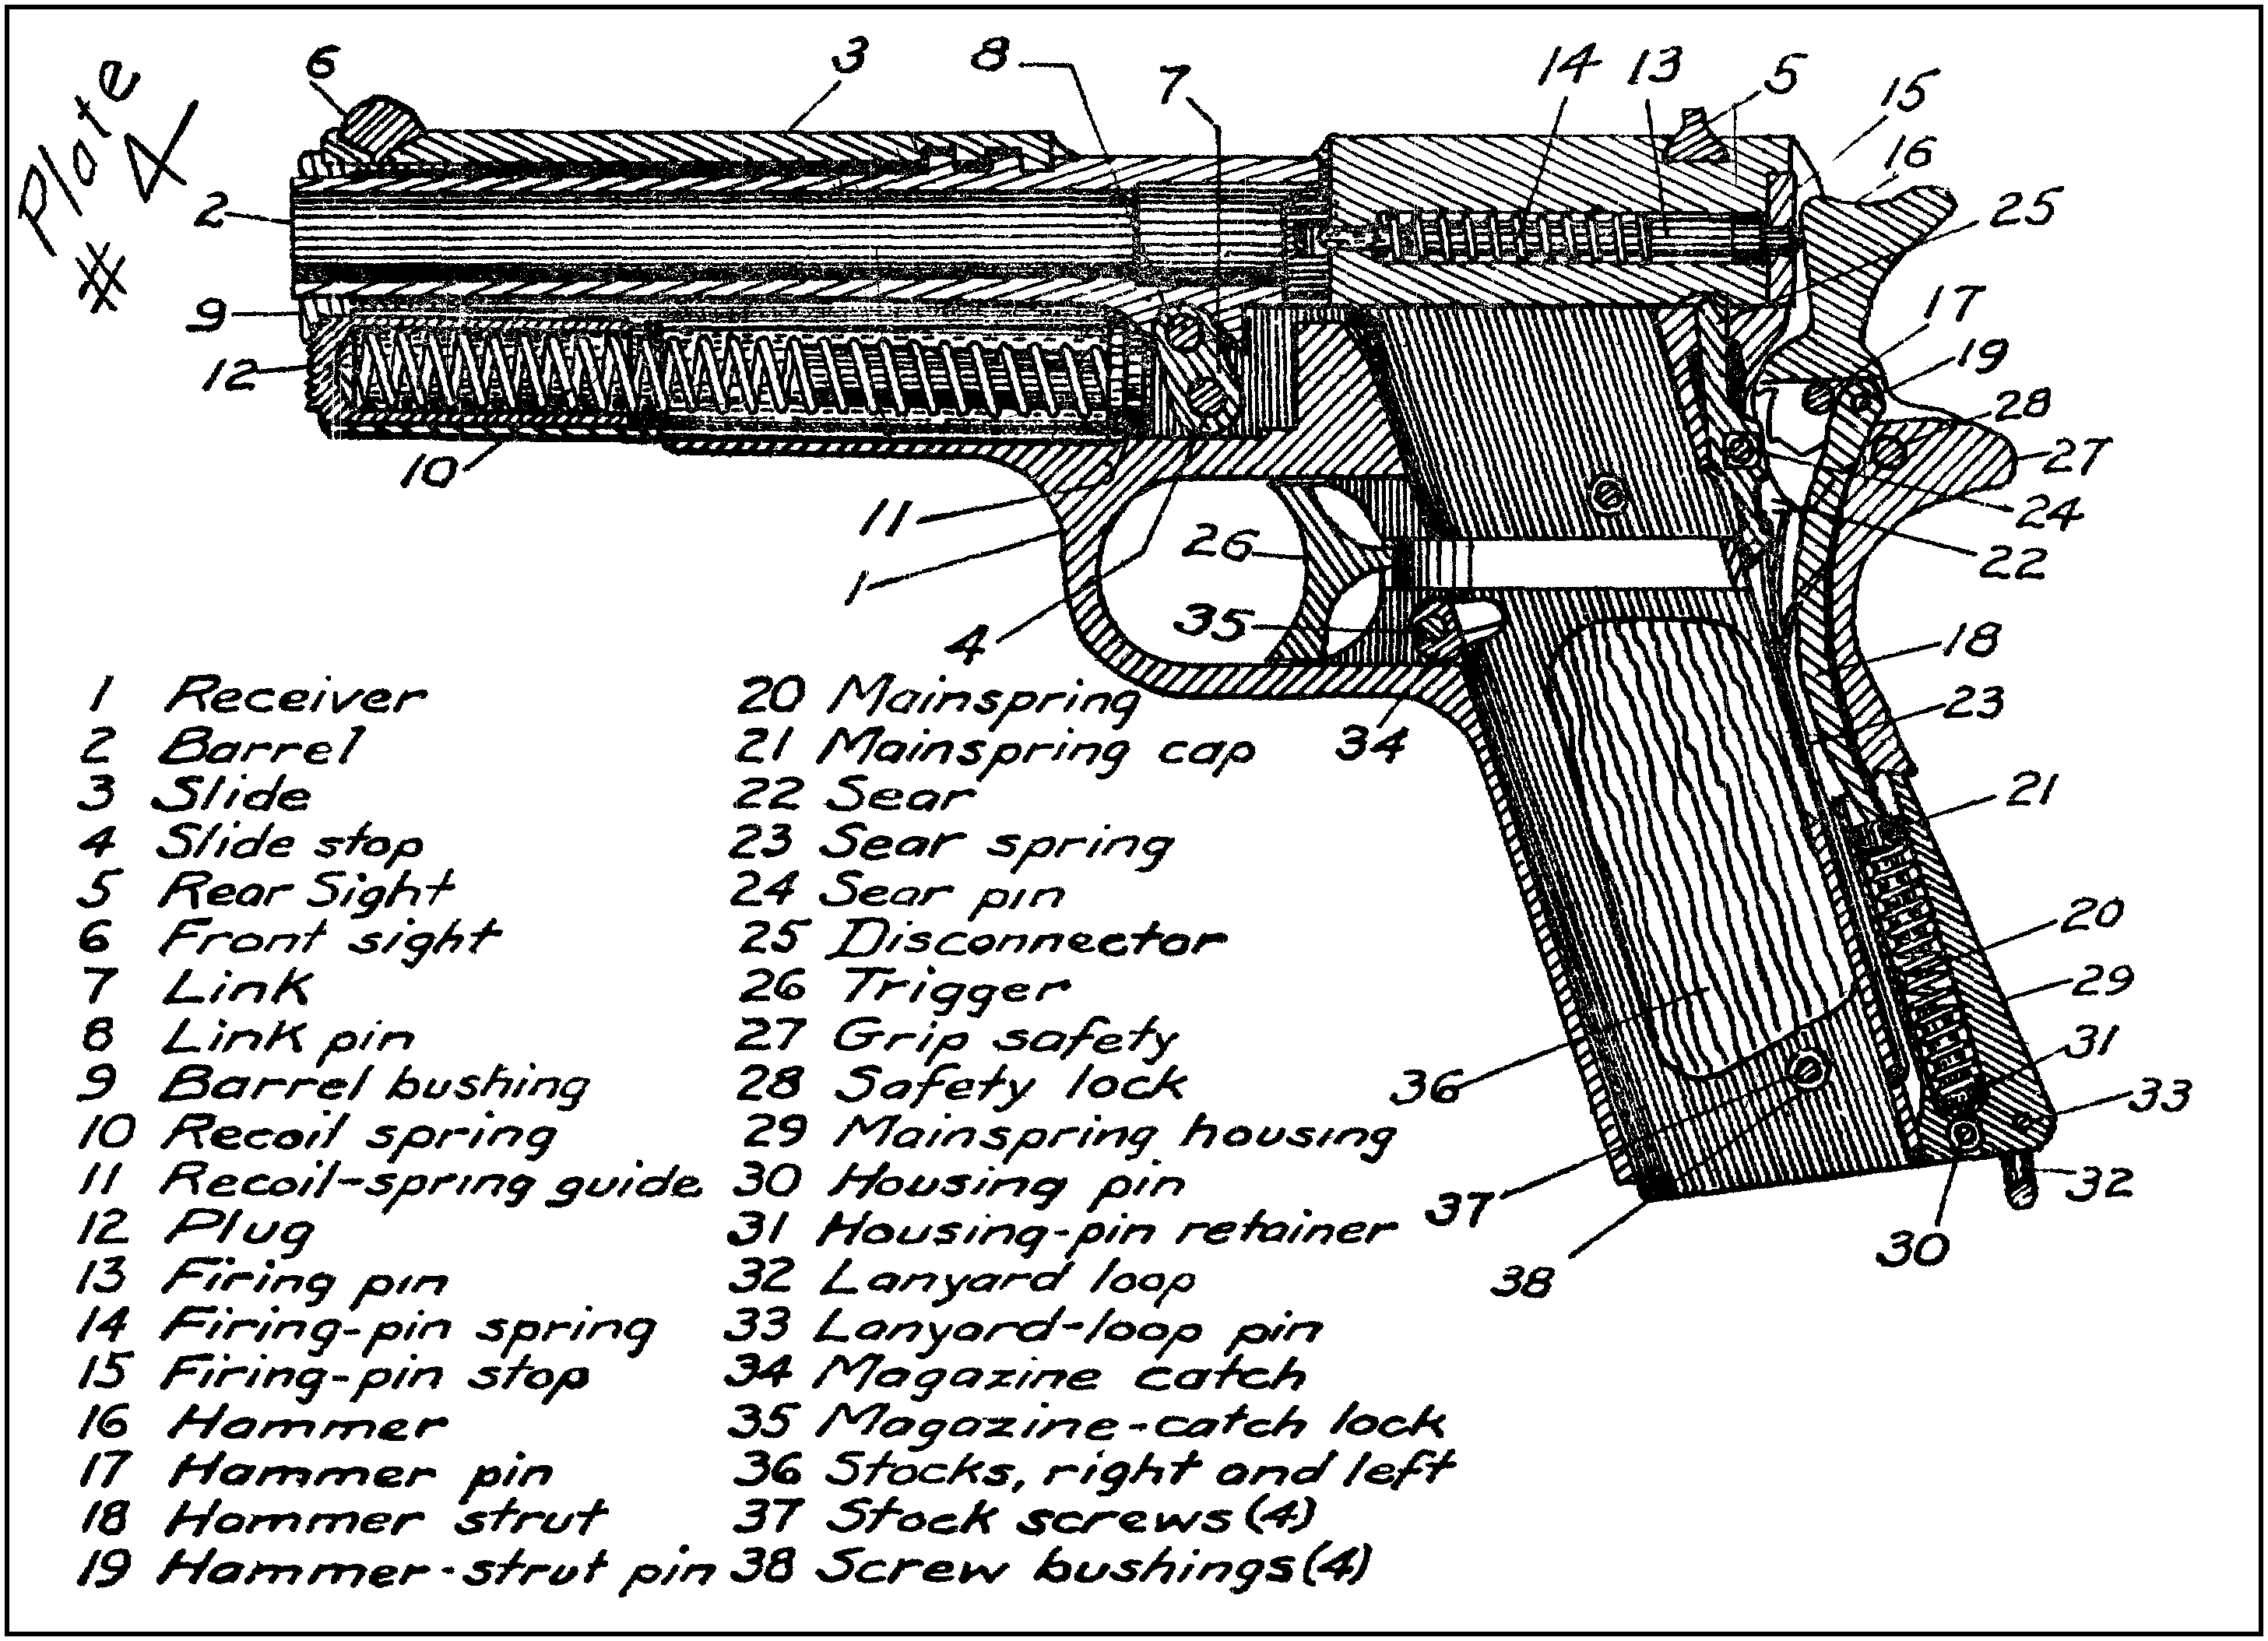 Plate
# 4
6
3
8
7
14
13
5
15
16
2
25
9
17
12
19
28
10
27
11
24
26
22
1
35
4
18
23
34
21
20
29
31
36
33
37
32
30
38
1 Receiver
2 Barrel
3 Slide
4 Slide stop
5 Rear Sight
6 Front sight
7 Link
8 Link pin
9 Barrel bushing
10 Recoil spring
11 Recoil-spring guide
12 Plug
13 Firing pin
14 Firing-pin spring
15 Firing-pin stop
16 Hammer
17 Hammer pin
18 Hammer strut
19 Hammer-strut pin
20 Mainspring
21 Mainspring cap
22 Sear
23 Sear spring
24 Sear pin
25 Disconnector
26 Trigger
27 Grip safety
28 Safety lock
29 Mainspring housing
30 Housing pin
31 Housing-pin retainer
32 Lanyard loop
33 Lanyard-loop pin
34 Magazine catch
35 Magazine-catch lock
36 Stocks, right and left
37 Stock screws (4)
38 Screw bushings (4)